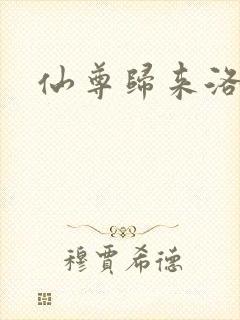 仙尊歸来洛
穆賈希德